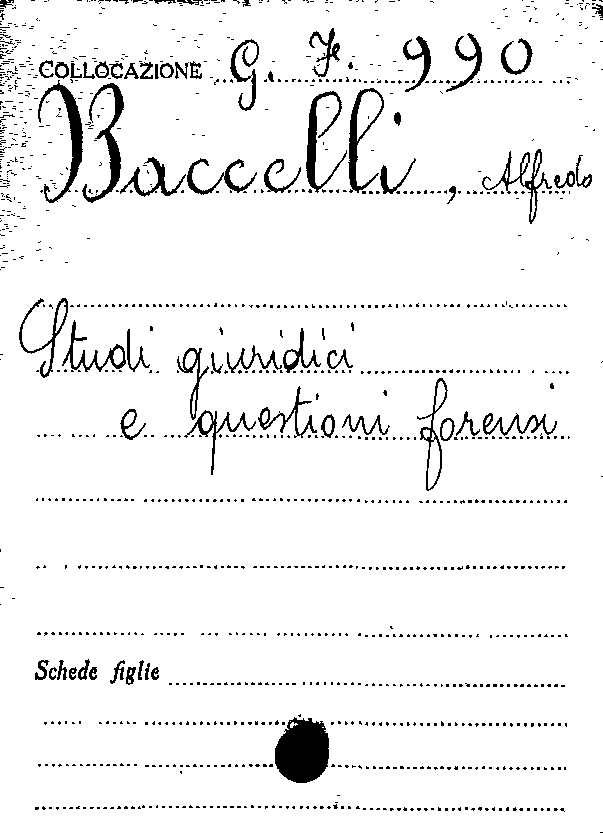 COLLOCAZIONE G. F. 990
Baccelli, Alfredo
Studi giuridici
e questioni forensi
Schede figlie